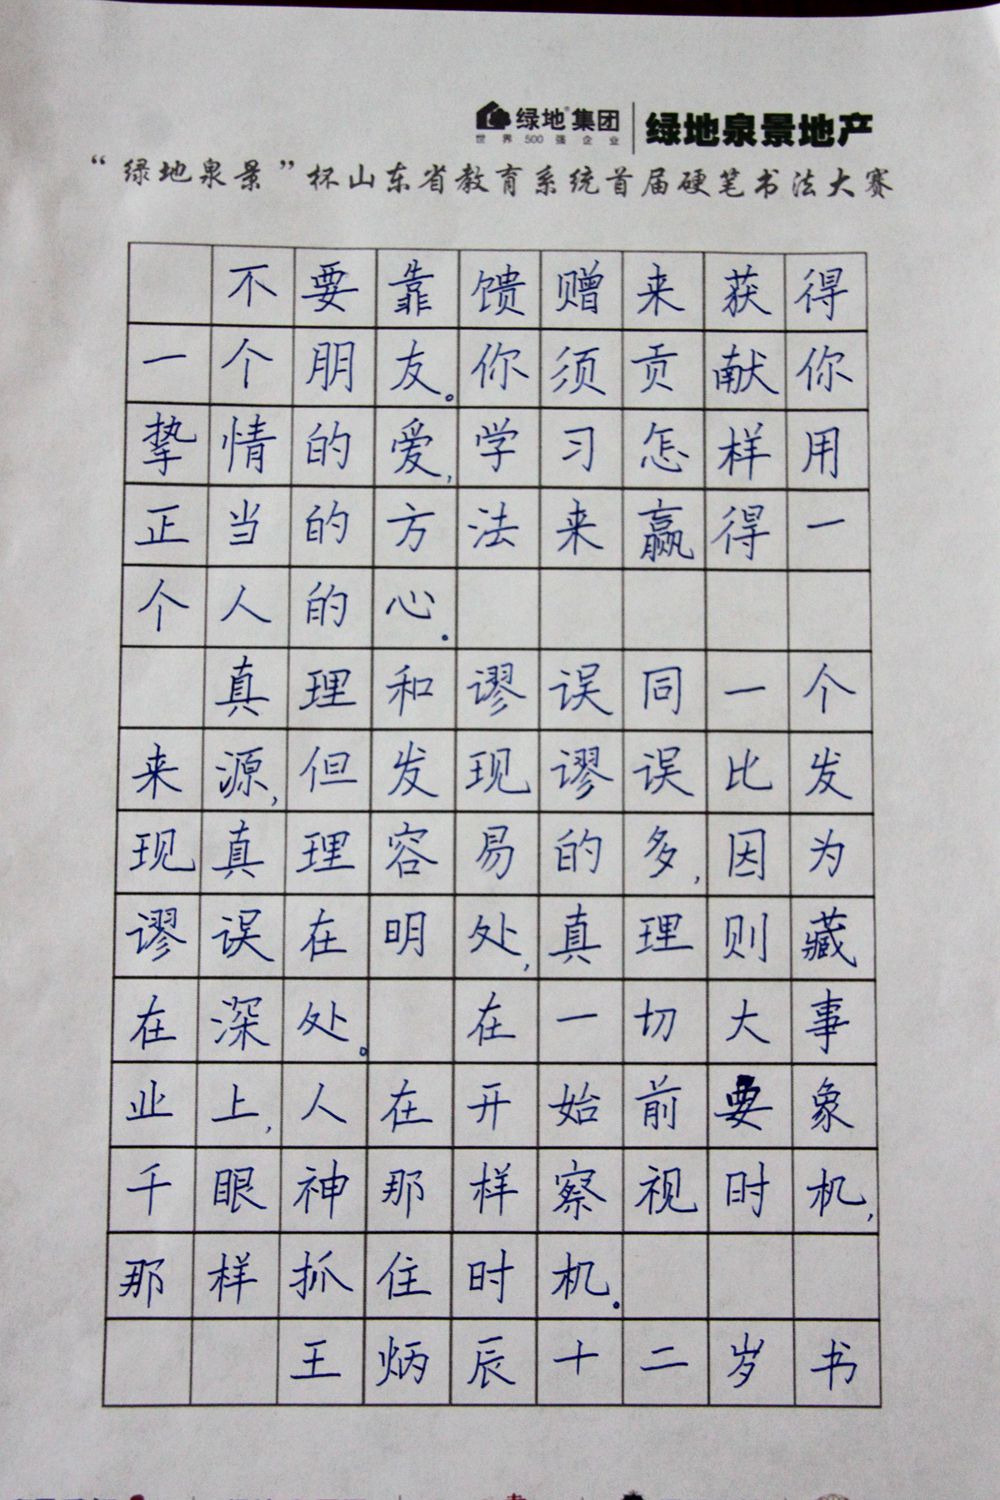 绿地®集团 绿地泉景地产
世界500强企业
“绿地泉景”杯山东省教育系统首届硬笔书法大赛
不要靠馈赠来获得
一个朋友。你须贡献你
挚情的爱,学习怎样用
正当的方法来赢得一
个人的心。
真理和谬误同一个
来源,但发现谬误比发
现真理容易的多,因为
谬误在明处,真理则藏
在深处。 在一切大事
业上,人在开始前要象
千眼神那样察视时机,
那样抓住时机。
王炳辰十二岁书